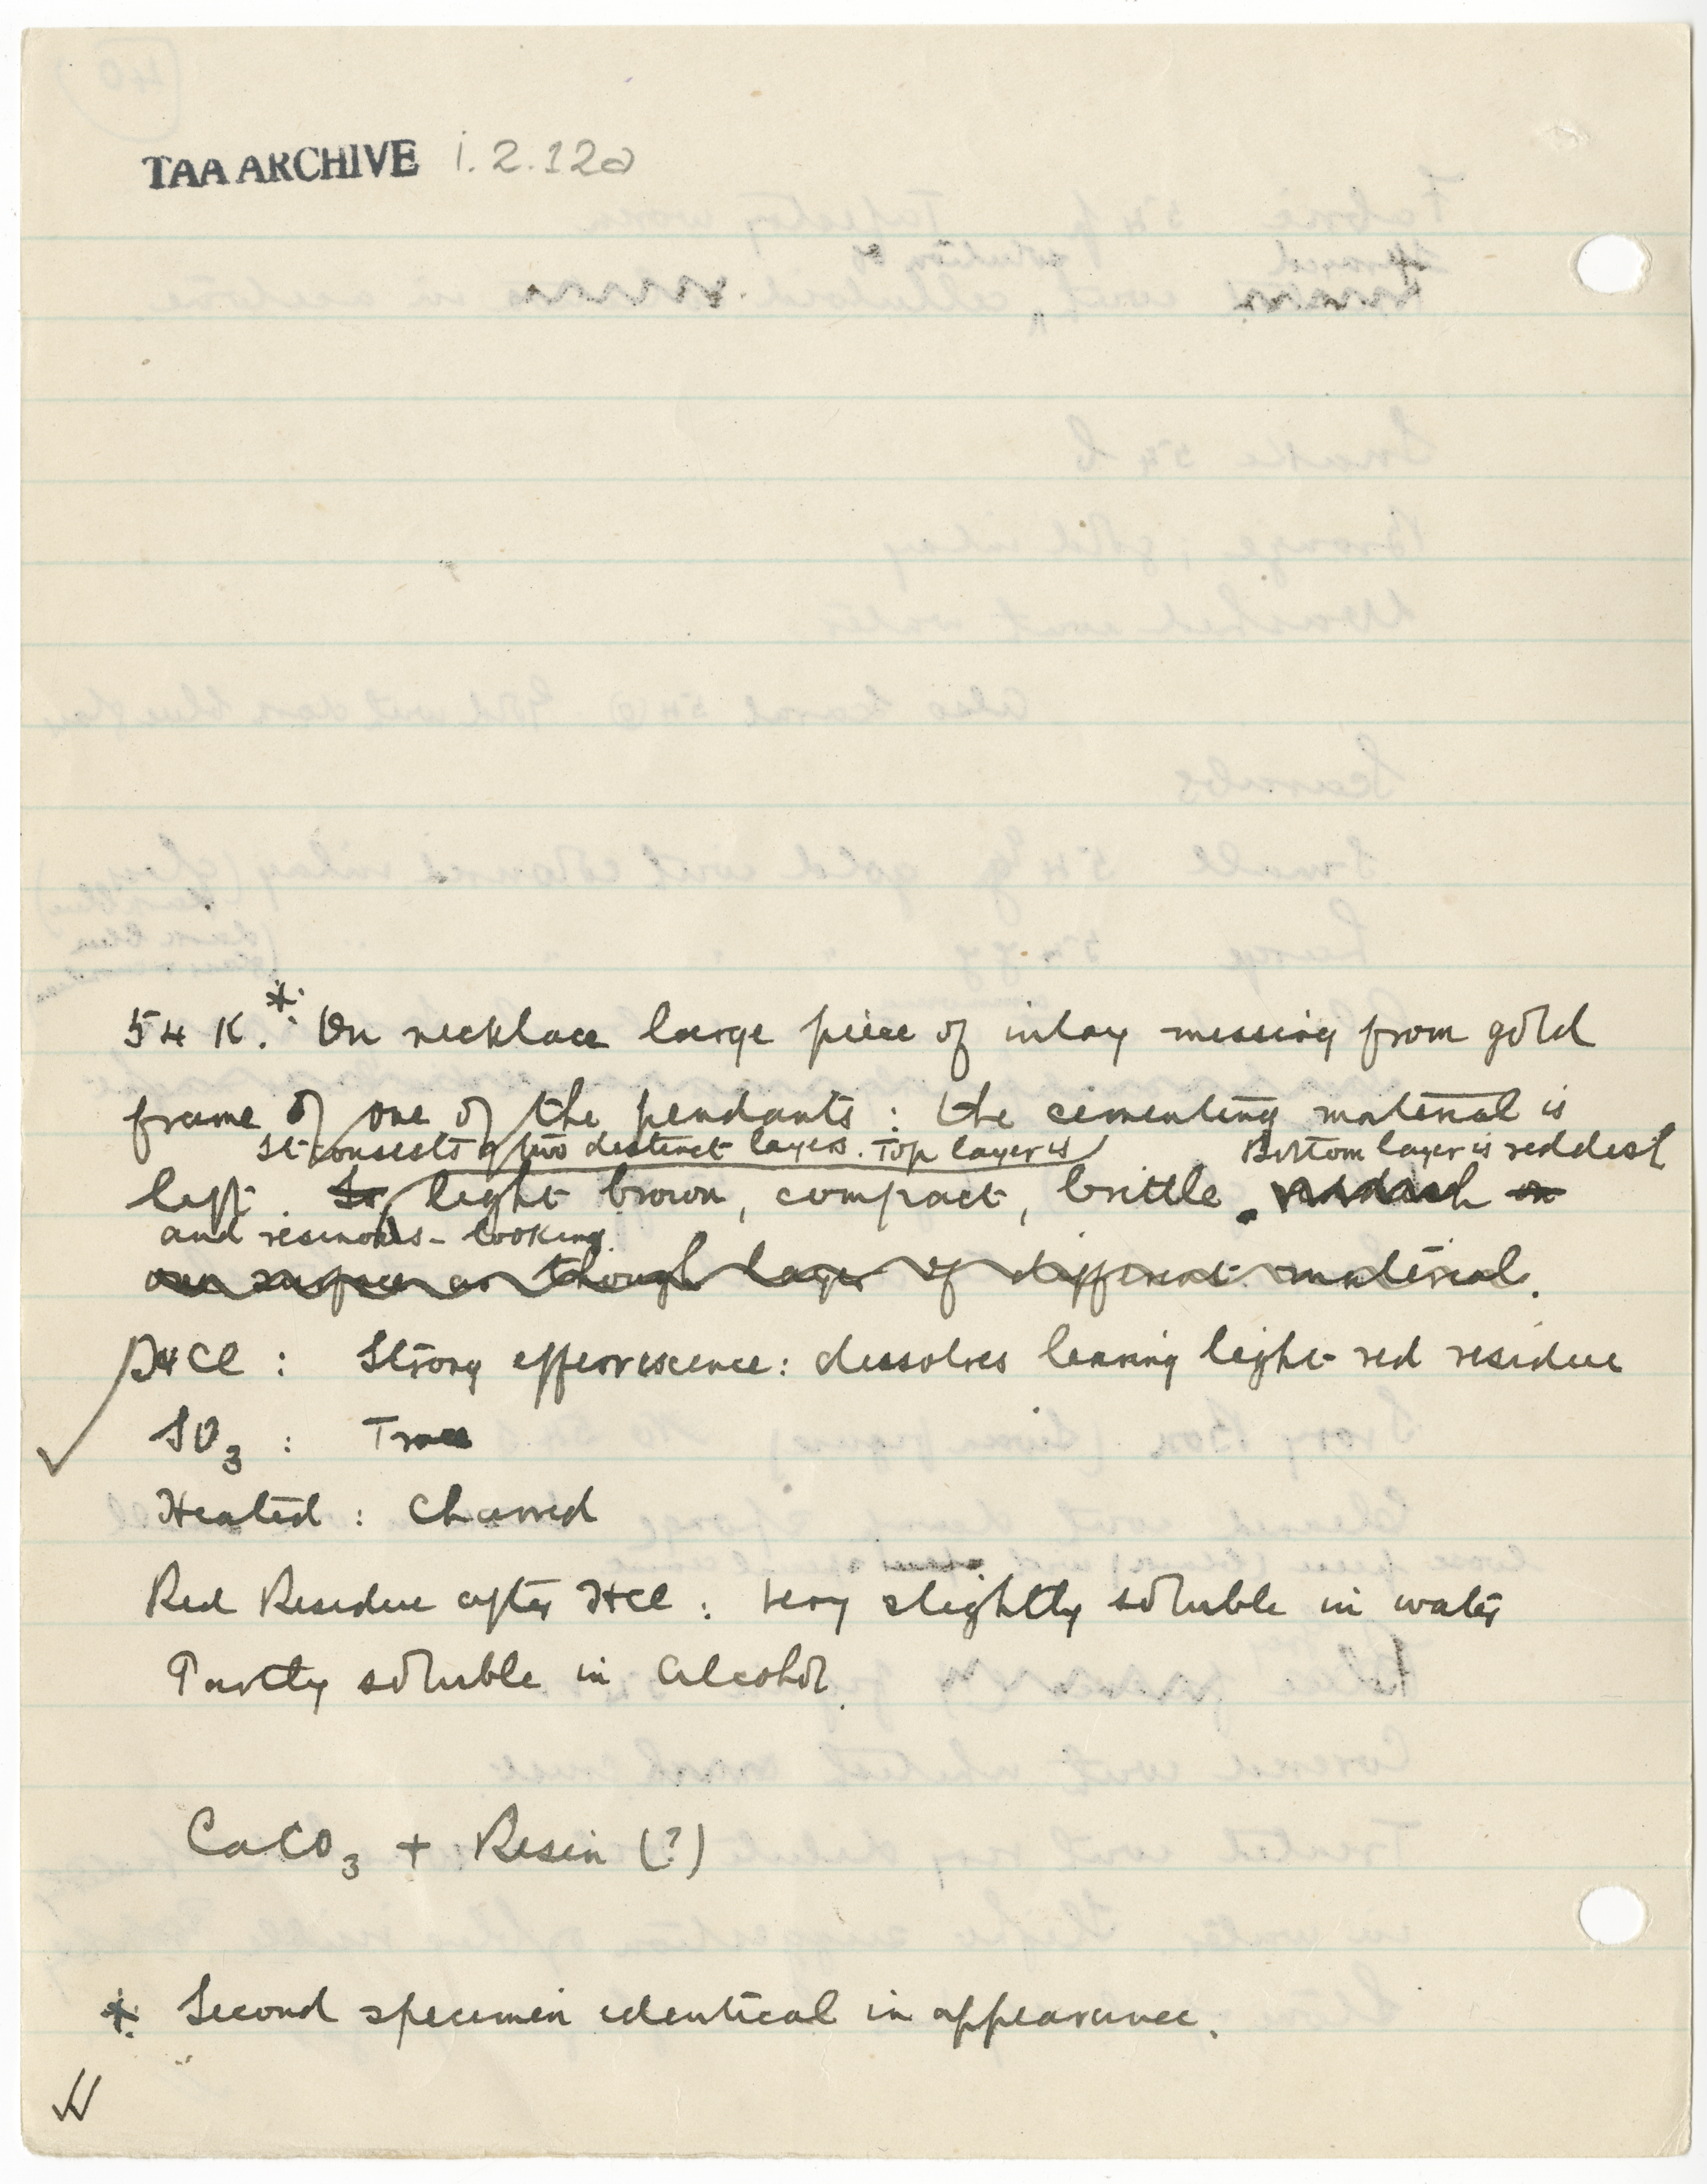 TAA ARCHIVE i.2.12a
54 K.* On necklace large piece of inlay missing from gold
frame of one of the pendants : the cementing material is
It consists of two distinct layers. Top layer is
Bottom layer is reddish
left. Is light brown, compact, brittle. reddish on
and resinous-looking.
own surface as though layer of different material.
HCl : Strong effervescence : dissolves leaving light red residue
SO3 : Trace
Heated : Charred
Red Residue after HCl : Very slightly soluble in water
Partly soluble in alcohol.
CaCO3 + Resin (?)
* Second specimen identical in appearance.